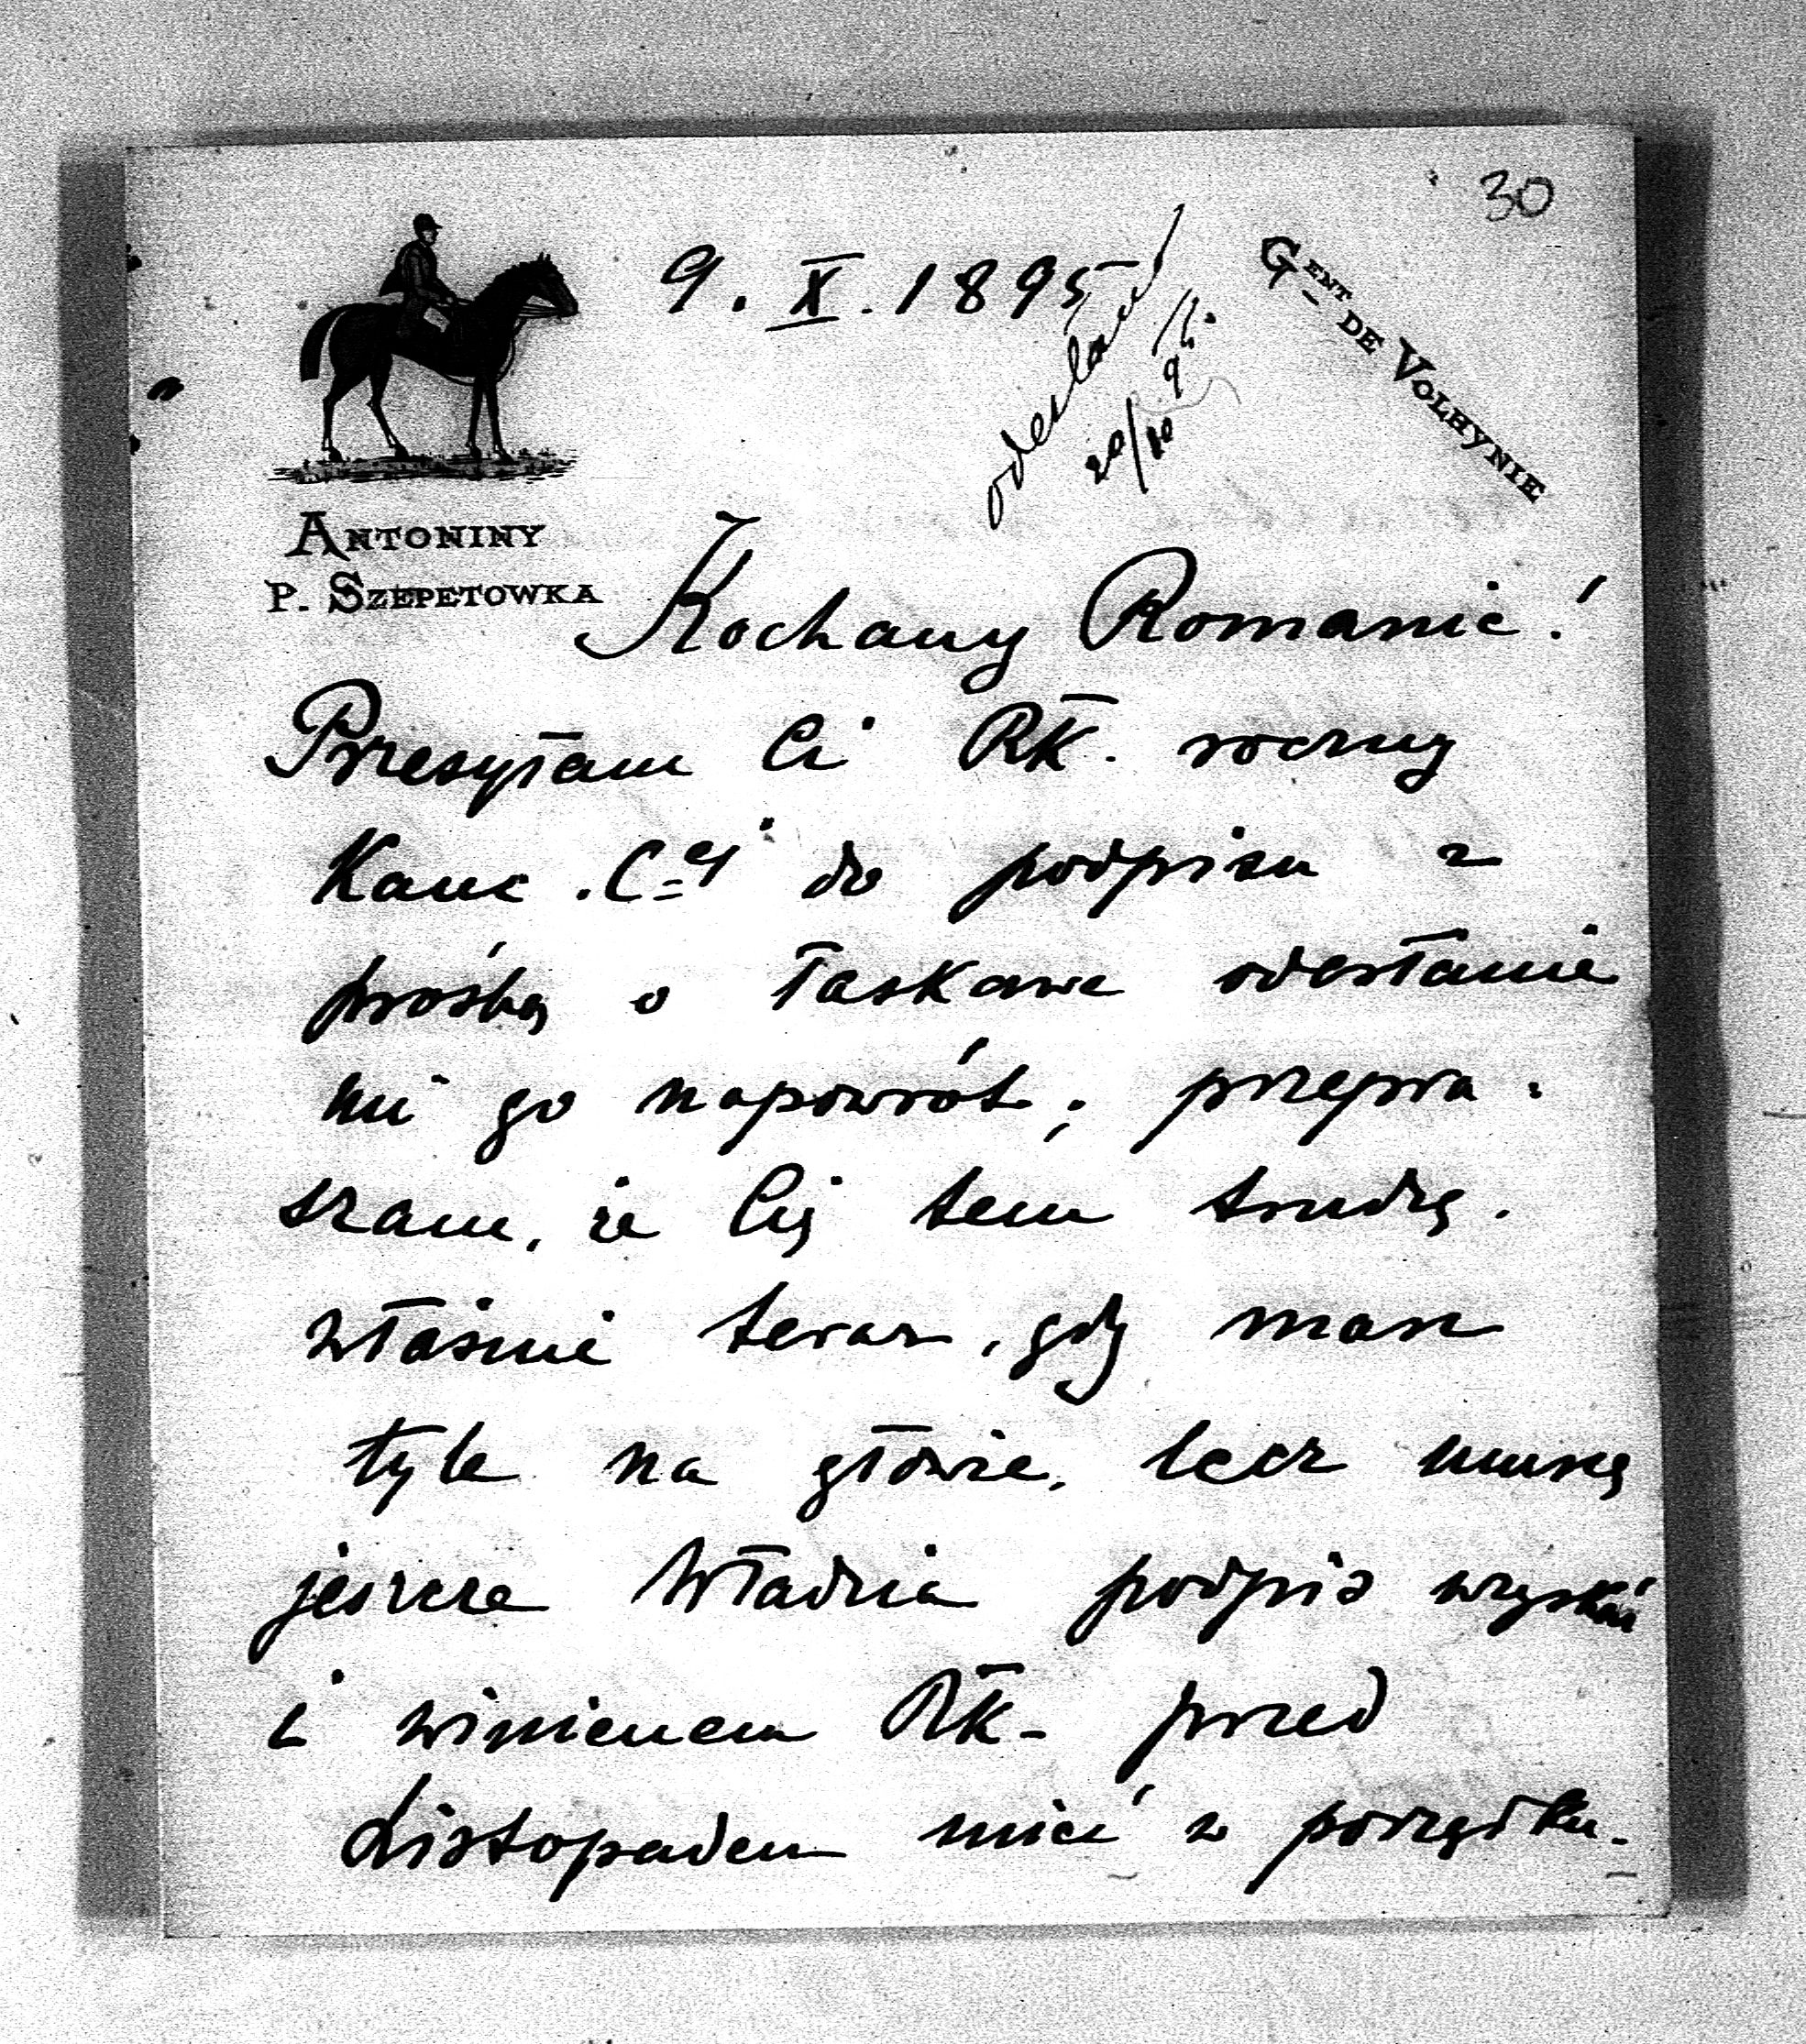 30
9. X. 1895
odesłany
20/10 95.
Gent DE VOLHYNIE
ANTONINY
P. SZEPETOWKA
Kochany Romanie!
Przesyłam Ci Rk. roczny
Kanc. Cej do podpisu z
prośbą o łaskawe odesłanie
mi go napowrót; przepra-
szam, że Cię tem trudzę.
właśnie teraz, gdy masz
tyle na głowie, lecz muszę
jeszcze Władzia podpis uzyskać
i winienem Rk- przed
Listopadem mieć w porządku.